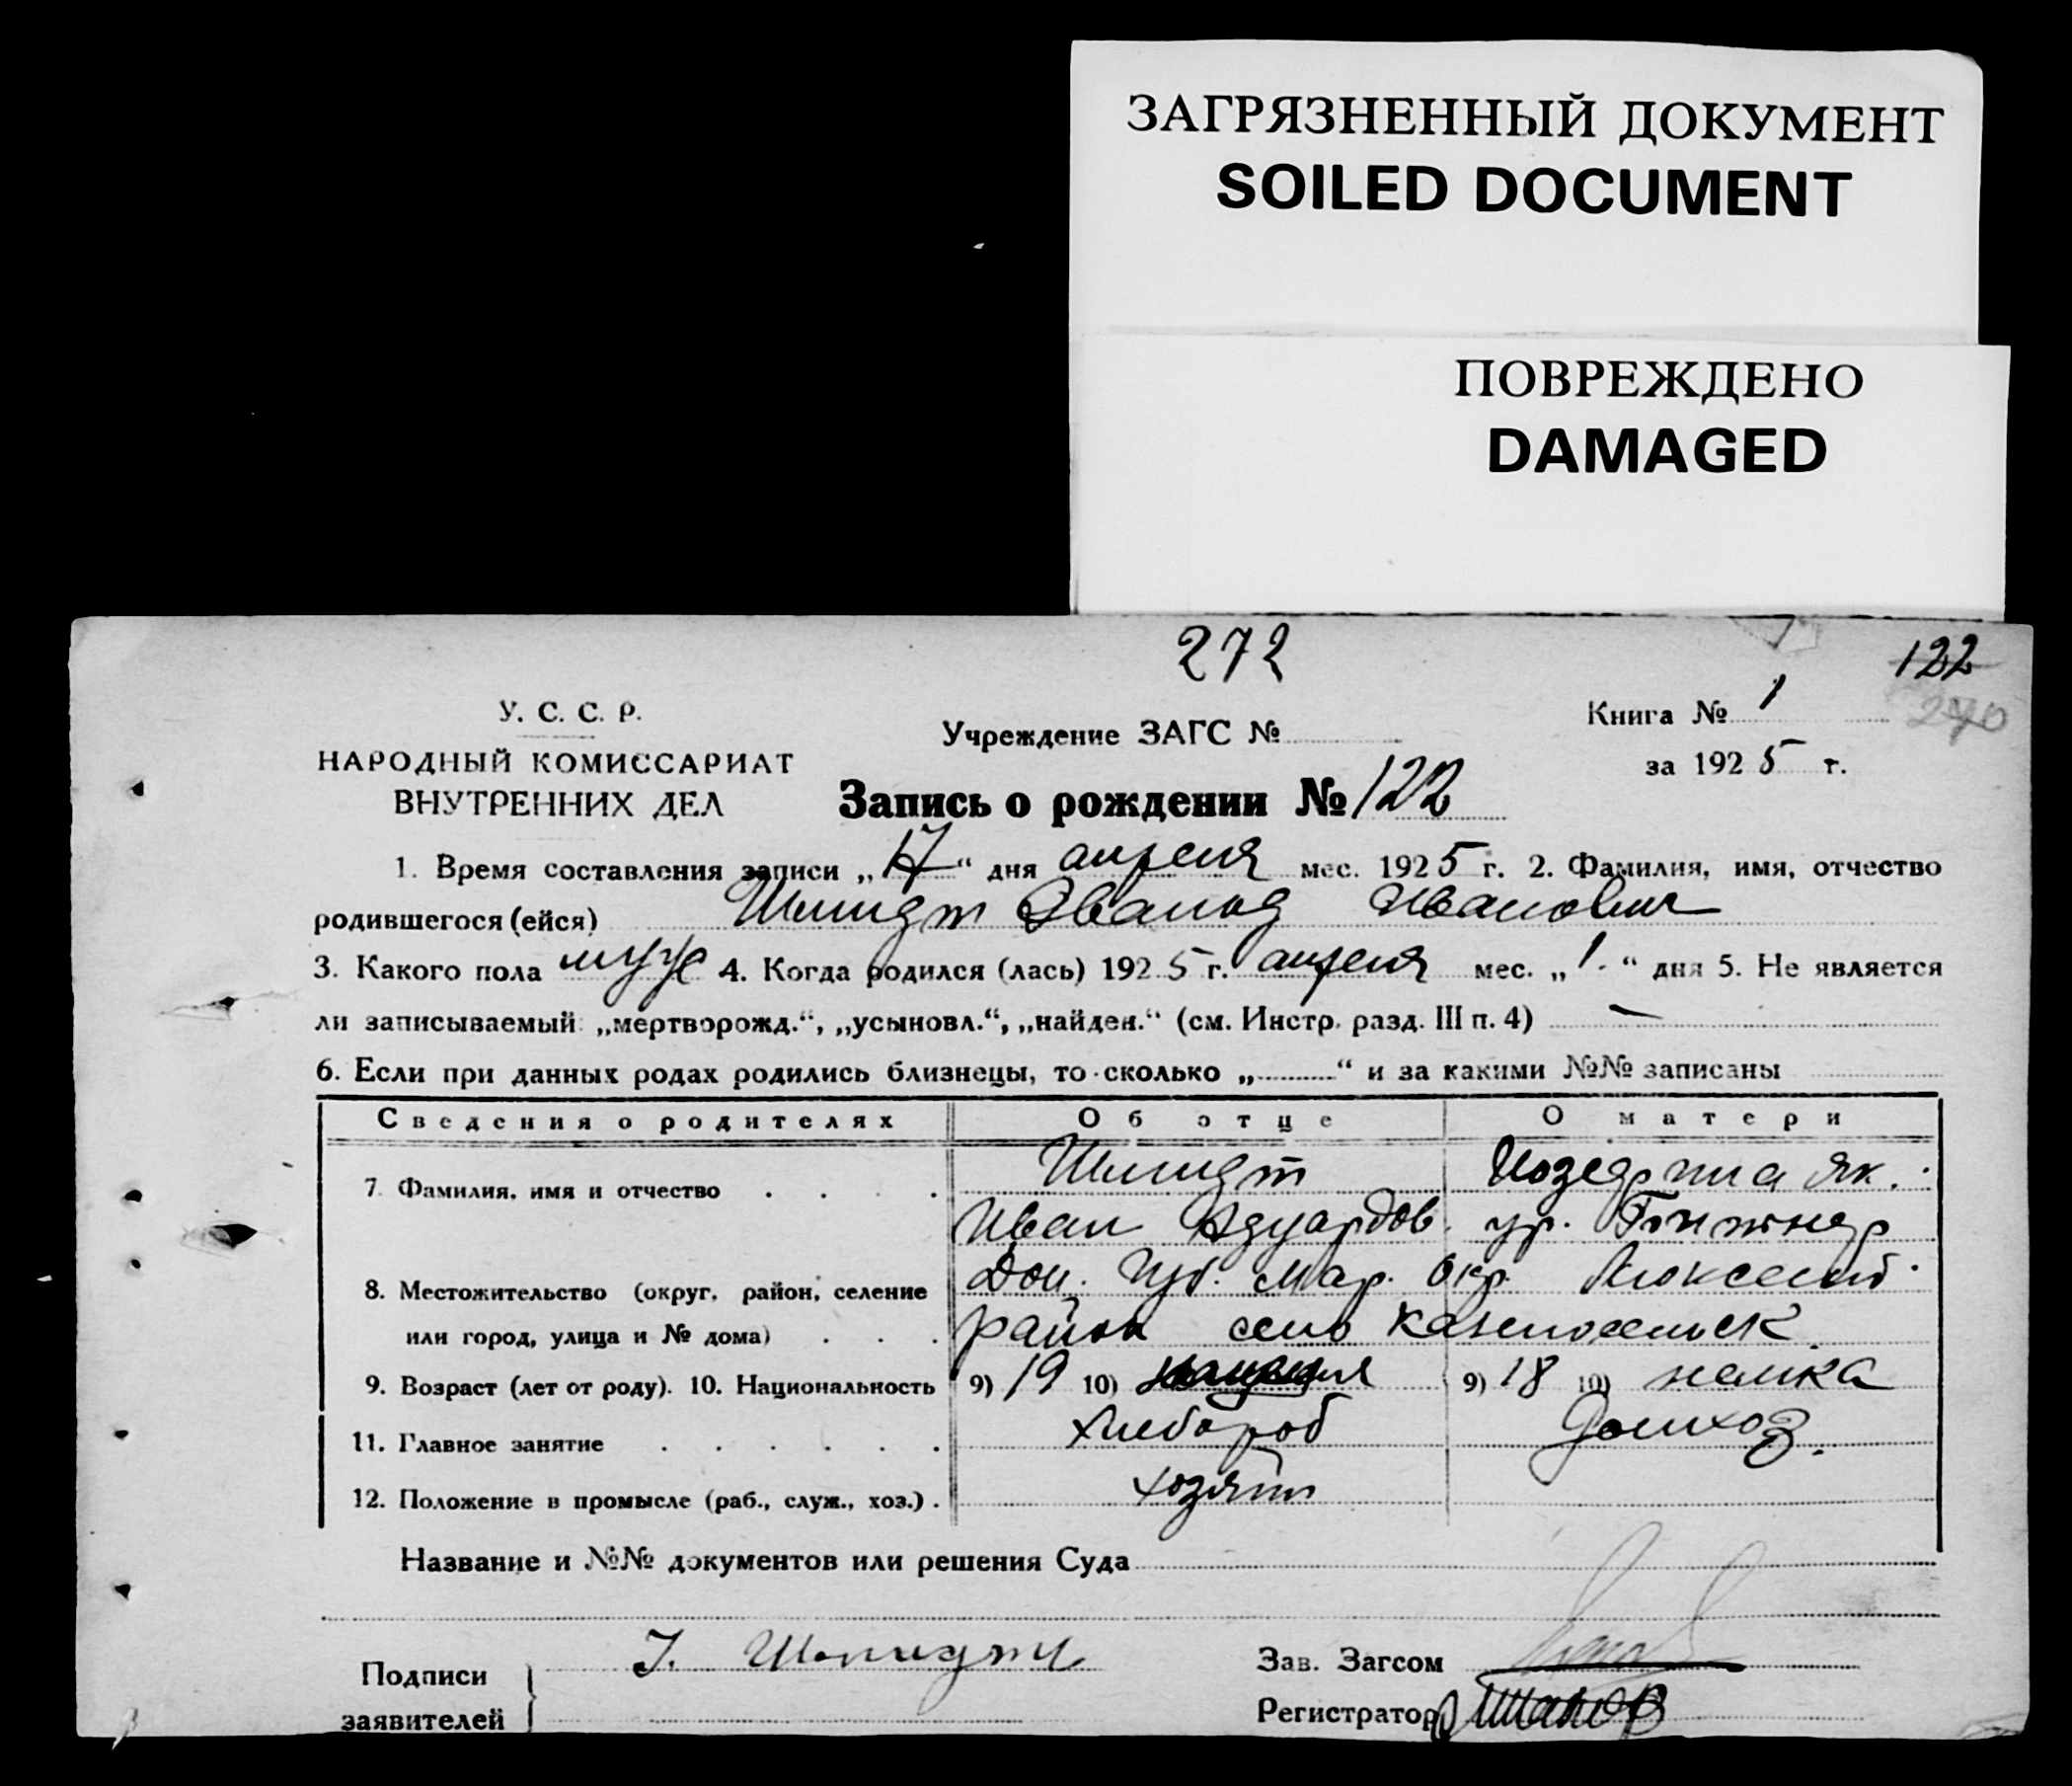 ЗАГРЯЗНЕННЫЙ ДОКУМЕНТ
SOILED DOCUMENT
ПОВРЕЖДЕНО
DAMAGED
272
122
270
У. С. С. Р.
НАРОДНЫЙ КОМИССАРИАТ
ВНУТРЕННИХ ДЕЛ
Учреждение ЗАГС №
Книга № 1
за 1925 г.
Запись о рождении № 122
1. Время составления записи „17“ дня апреля мес. 1925 г. 2. Фамилия, имя, отчество
родившегося (ейся) Шмидт Эвальд Иванович
3. Какого пола муж 4. Когда родился (лась) 1925 г. апреля мес. „1.“ дня 5. Не является
ли записываемый „мертворожд.“, „усыновл.“, „найден.“ (см. Инстр. разд. III п. 4) —
6. Если при данных родах родились близнецы, то сколько „..........“ и за какими №№ записаны
Сведения о родителях Об отце О матери
7. Фамилия, имя и отчество Шмидт Як.
Иван Эдуардов. ур.
8. Местожительство (округ, район, селение Дон. Губ. Мар. Окр.
или город, улица и № дома) район село
9. Возраст (лет от роду). 10. Национальность 9) 19 10) 9) 18 10) немка
11. Главное занятие хлебороб домхоз.
12. Положение в промысле (раб., служ., хоз.) . хозяин
Название и №№ документов или решения Суда
Подписи
заявителей
Шмидт
Зав. Загсом
Регистратор